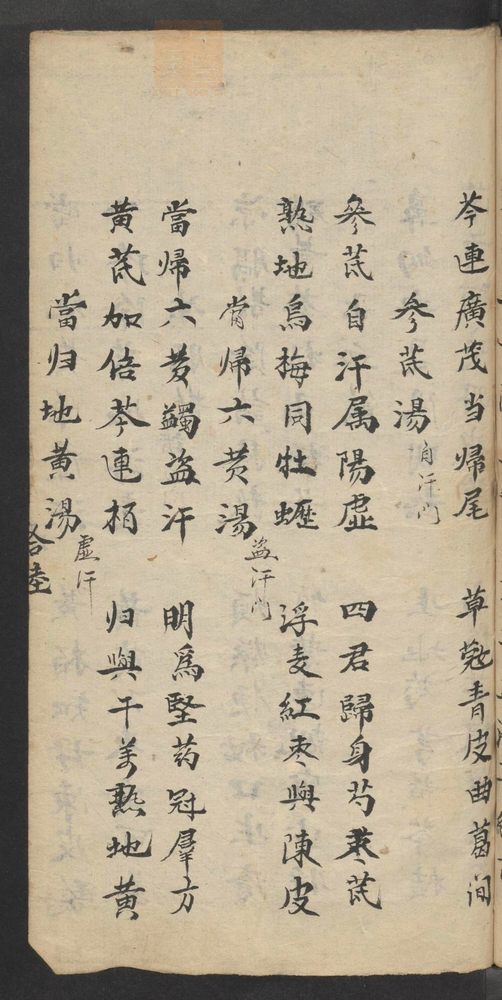 芩連廣茂当帰尾 草𧆑青皮曲葛间
參芪湯 自汗门
參芪自汗属陽虚 四君歸身芍枣芪
熟地烏梅同牡蠣 浮麦紅枣與陳皮
當帰六黄湯 盗汗门
當帰六黄蠲盗汗 明爲堅药冠羣方
黄芪加倍芩連栢 归與干姜熟地黄
當归地黄湯 虚汗